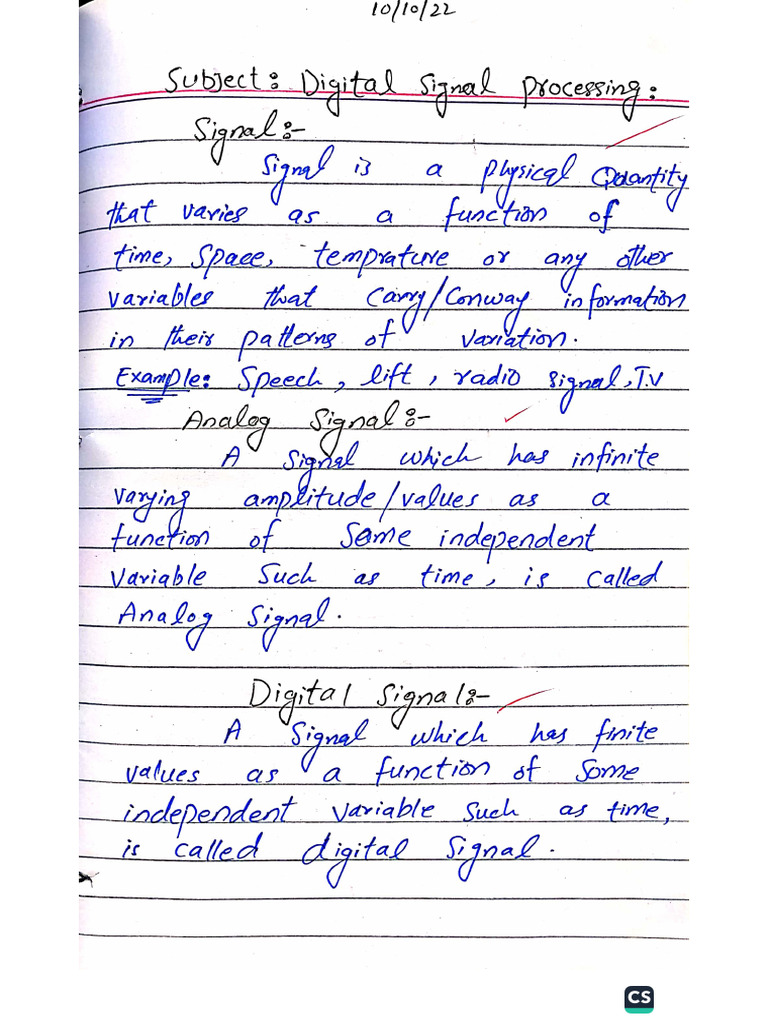 10/10/22
Subject: Digital Signal Processing:
Signal:-
Signal is a physical Quantity
that varies as a function of
time, space, temprature or any other
variables that Carry/Conway information
in their patterns of variation.
Example: Speech, lift, radio signal, T.V
Analog Signal:-
A signal which has infinite
varying amplitude/values as a
function of some independent
variable such as time, is called
Analog signal.
Digital Signal:-
A signal which has finite
values as a function of some
independent variable such as time,
is called digital signal.
CS